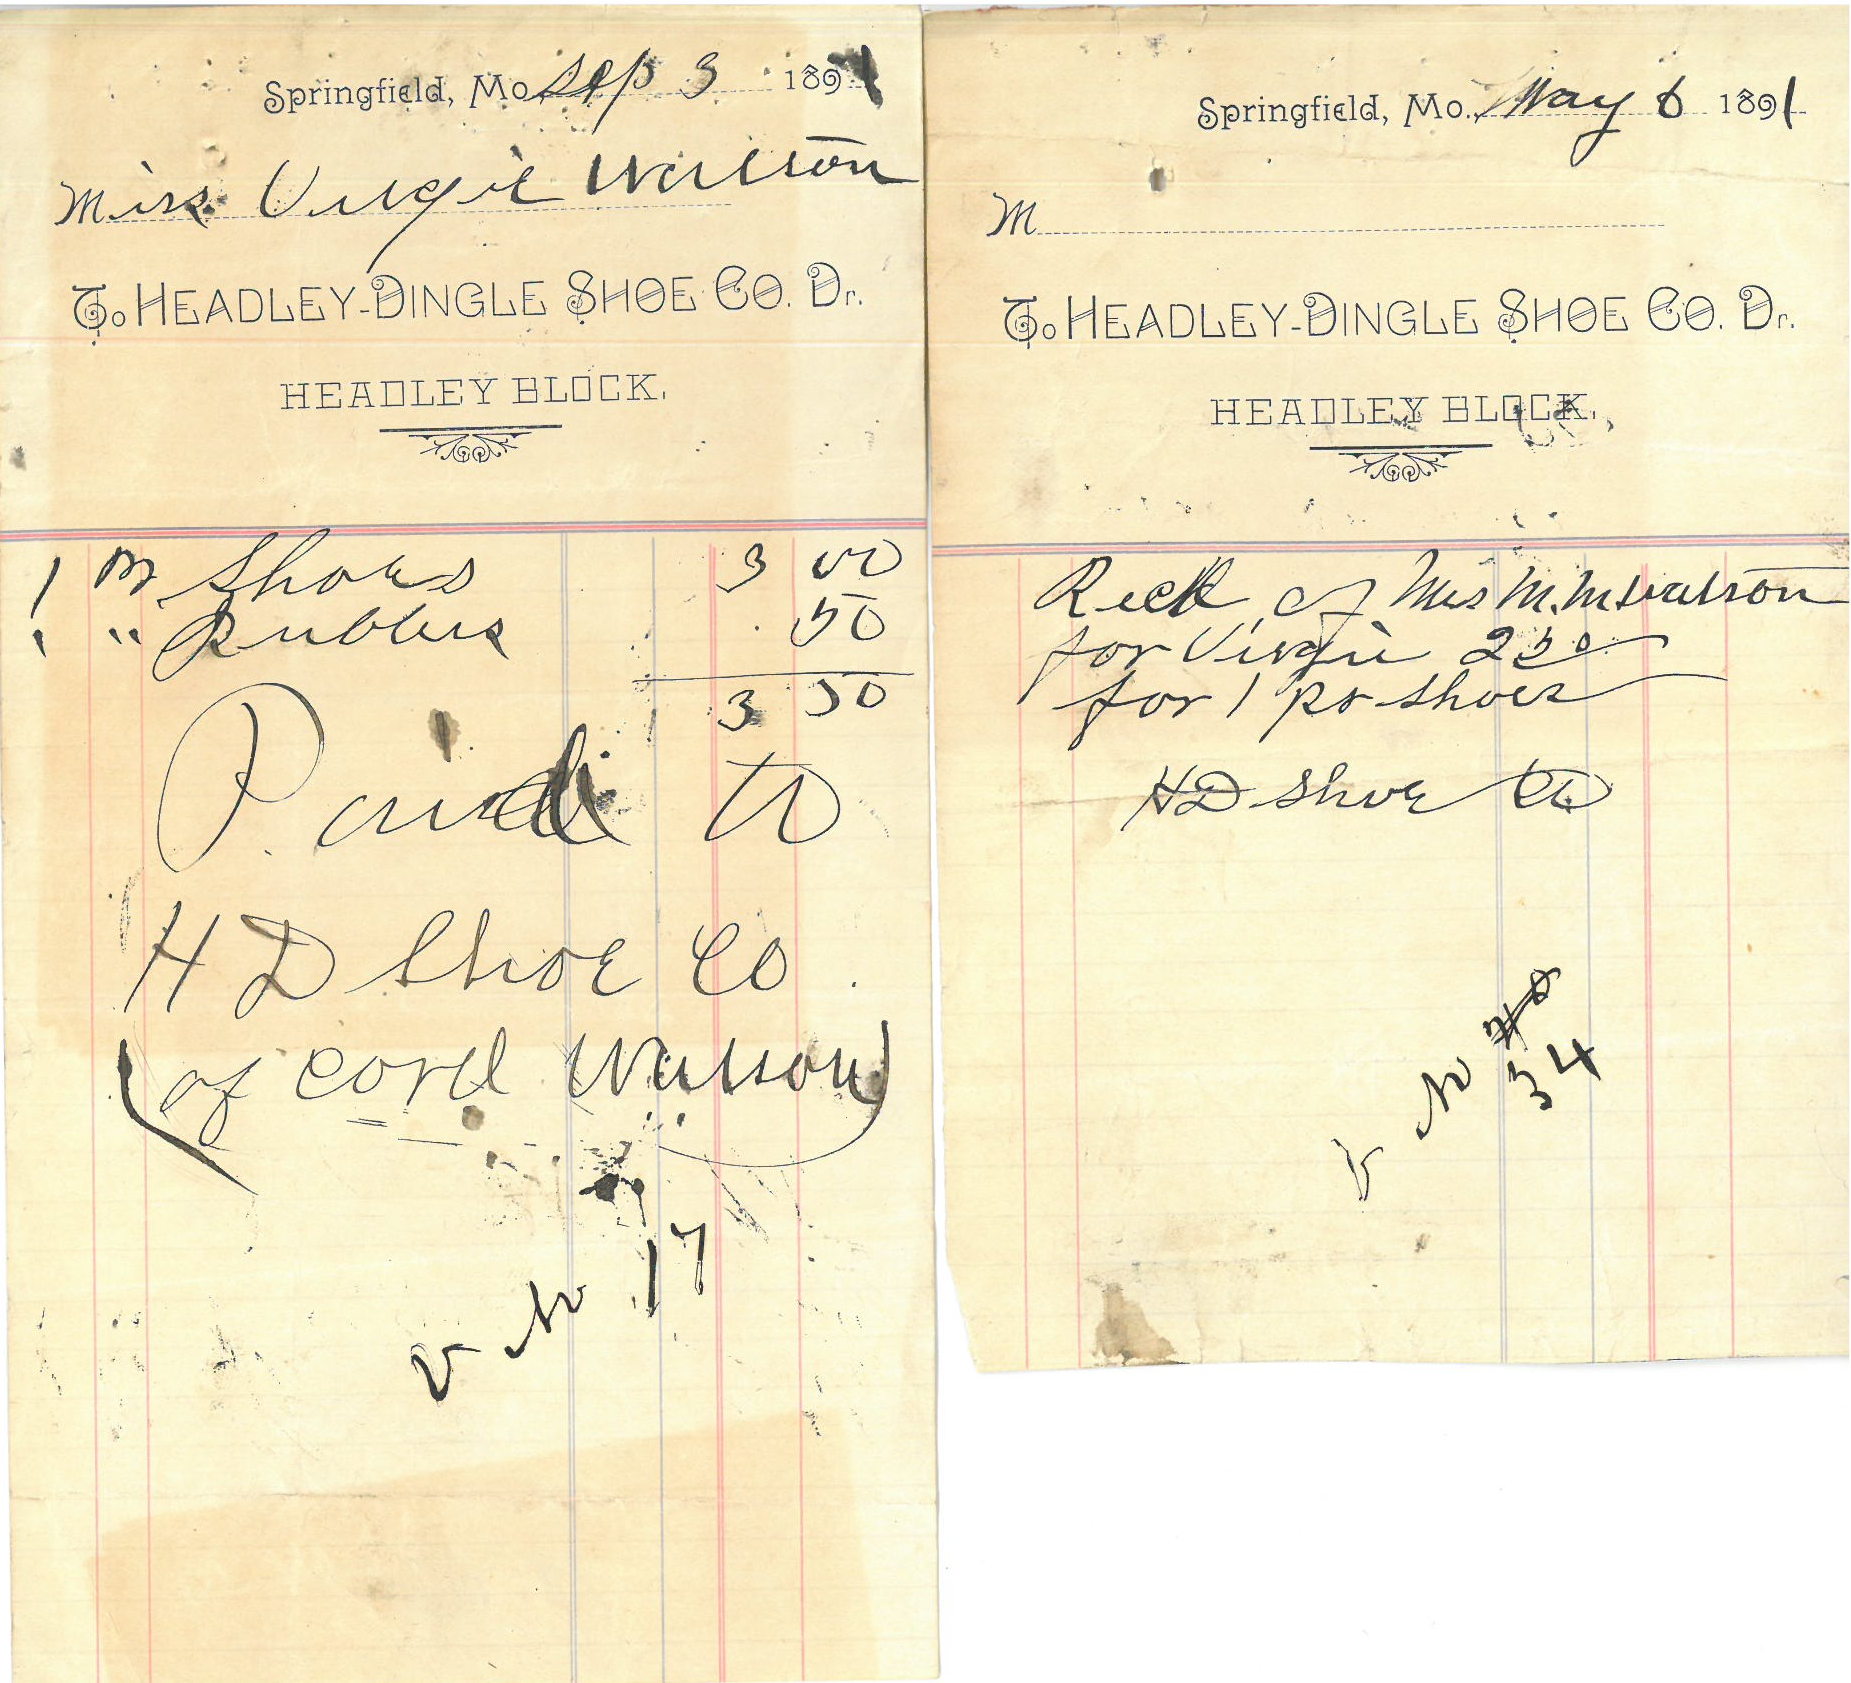 Springfield, Mo. Sep 3 1891
Miss Virgie Watson
To HEADLEY-DINGLE SHOE CO. Dr.
HEADLEY BLOCK.
1 Pr Shoes 3 00
" " Rubbers 50
3 50
Paid to
H D Shoe Co.
(of cord Watson)
V No 17
Springfield, Mo., May 6 1891
M
To HEADLEY-DINGLE SHOE CO. Dr.
HEADLEY BLOCK.
Recd of Mrs M. M Watson
for Virgie 2 50
for 1 pr shoes
HD Shoe Co
V No
34